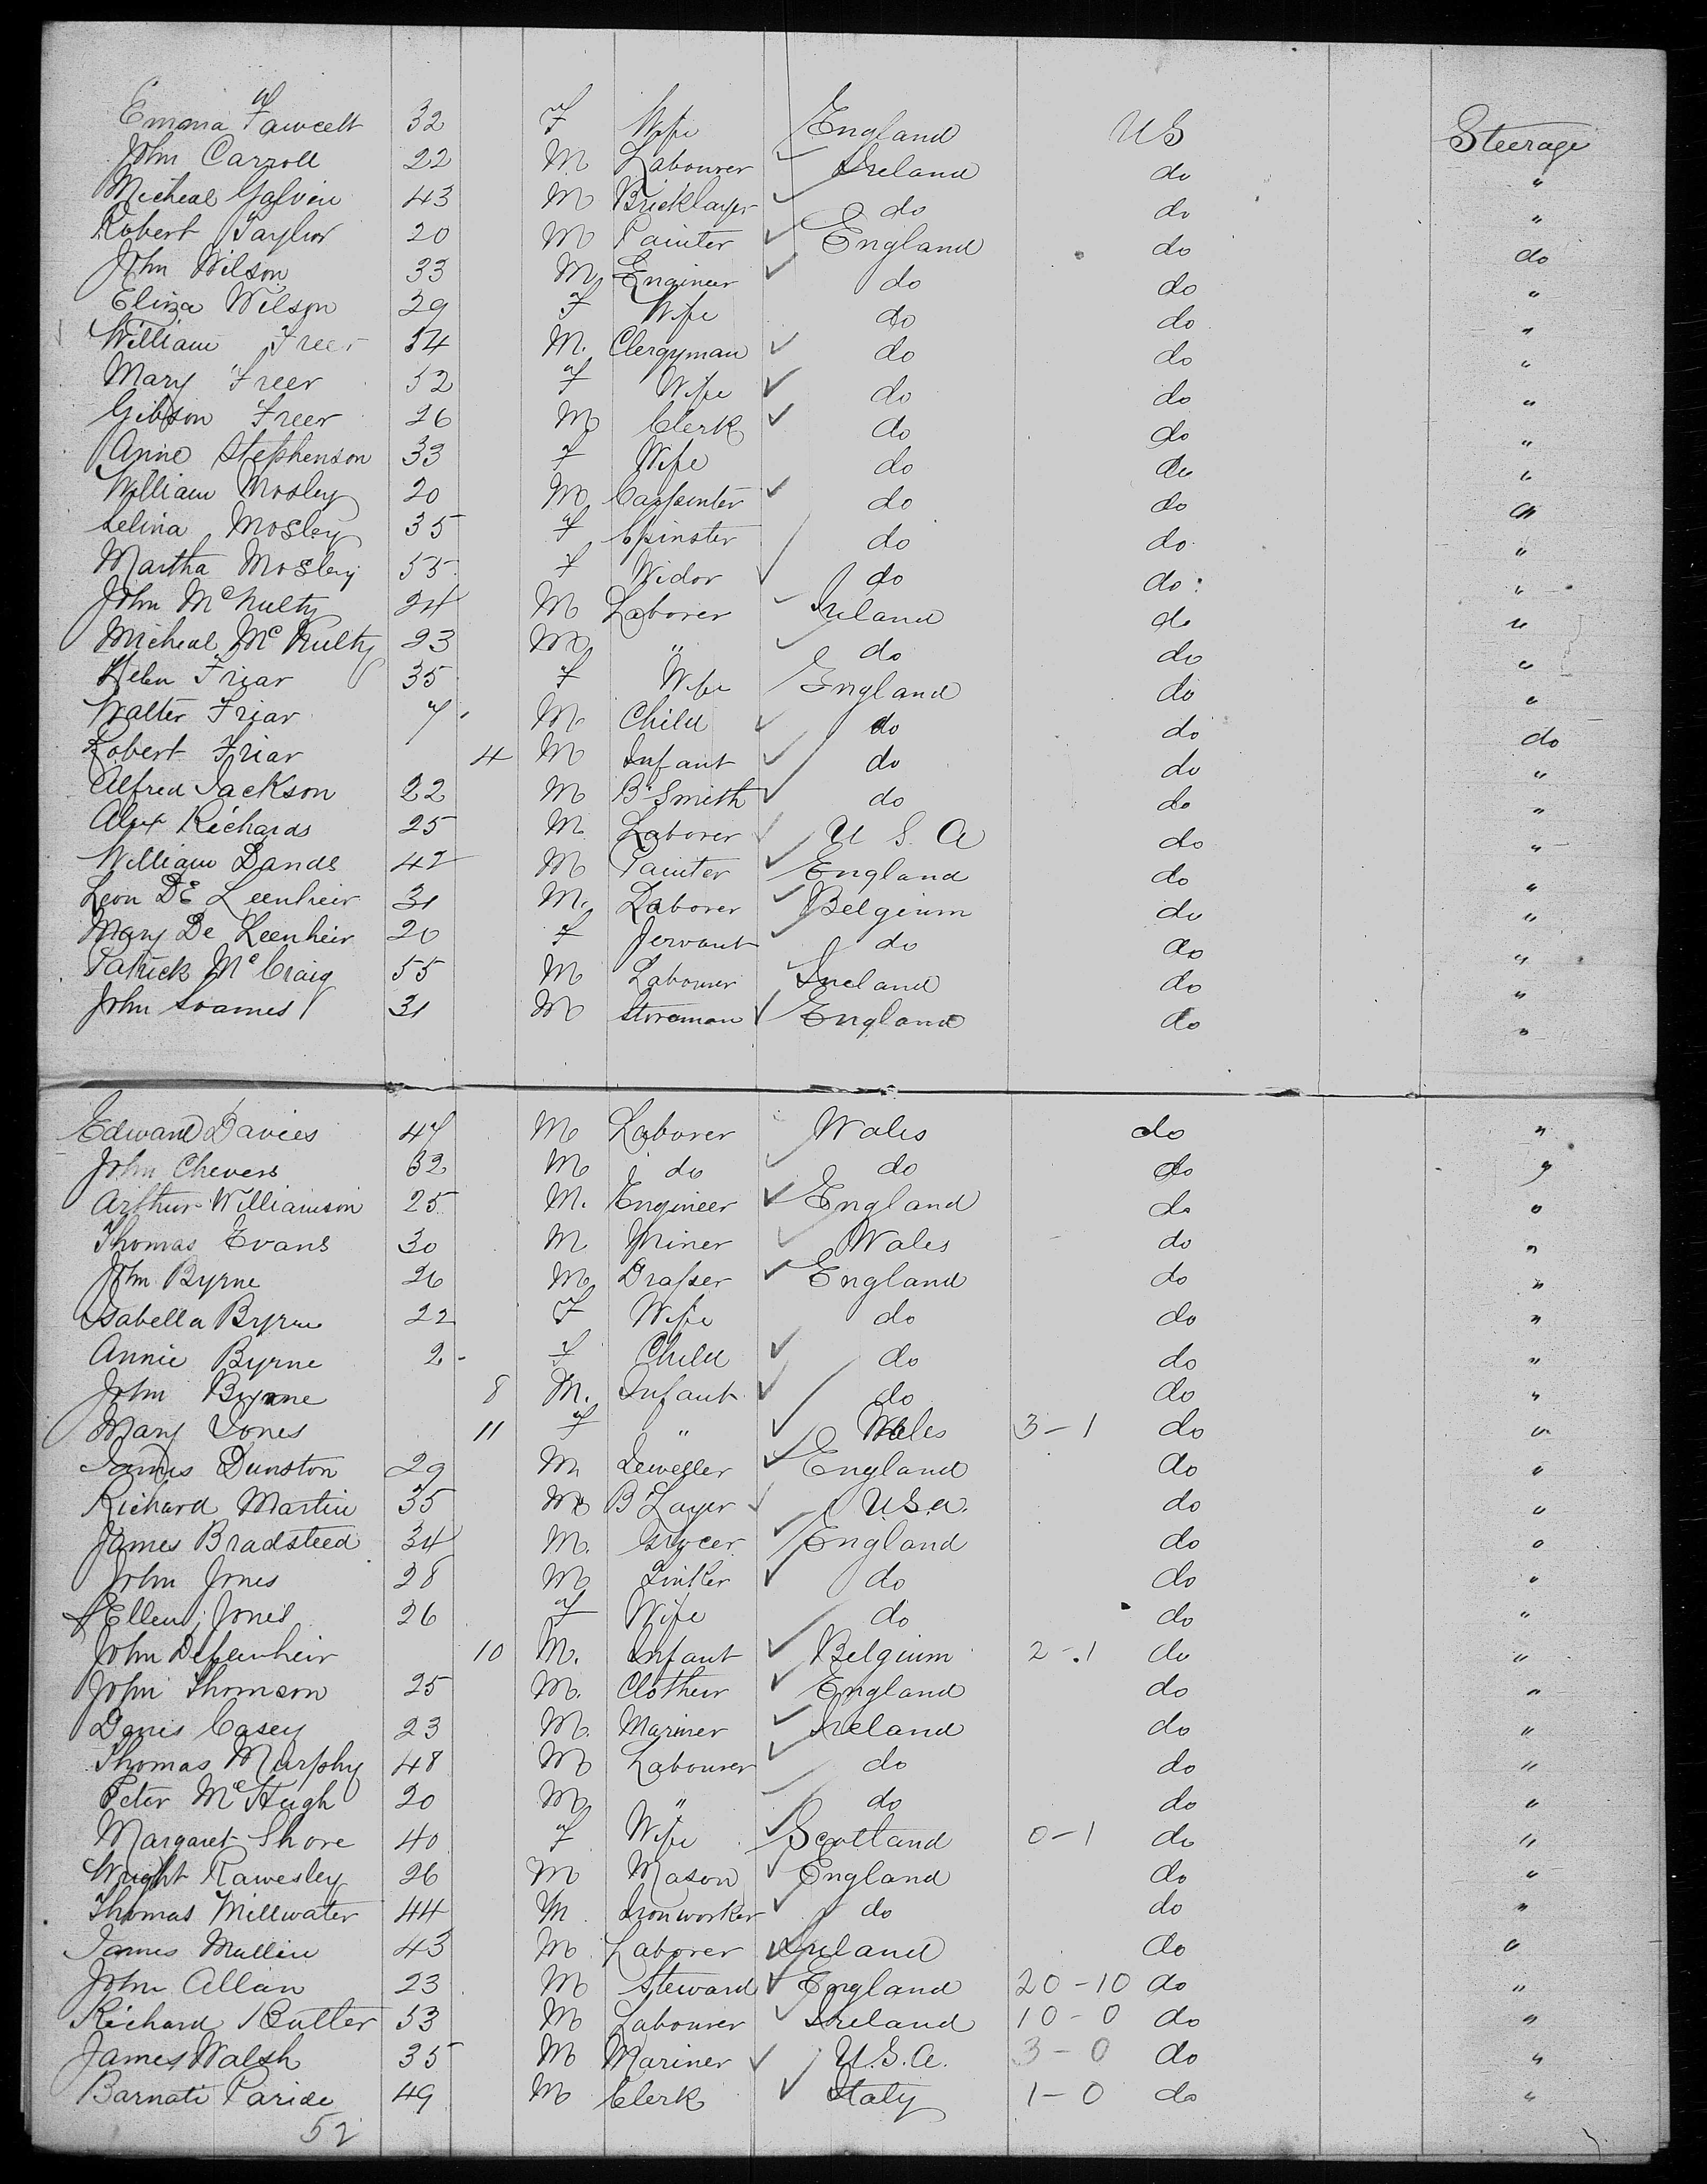 Emma Fawcett 32 F Wife England US Steerage
John Carroll 22 M Labourer Ireland do "
Micheal Galvin 43 M Bricklayer do do "
Robert Taylor 20 M Painter England do do
John Wilson 33 M Engineer do do "
Eliza Wilson 29 F Wife do do "
William Freer 54 M. Clergyman do do "
Mary Freer 52 F Wife do do "
Gibson Freer 26 M Clerk do do "
Anne Stephenson 33 F Wife do do "
William Mosley 20 M Carpenter do do "
Selina Mosley 35 F Spinster do do "
Martha Mosley 55 F Widor do do "
John McNulty 24 M Laborer Ireland do "
Micheal McNulty 23 M " do do "
Helen Friar 35 F Wife England do "
Walter Friar 7 M Child do do do
Robert Friar 4 M Infant do do "
Alfred Jackson 22 M B Smith do do "
Alex Richards 25 M Laborer U S. A do "
William Dands 42 M Painter England do "
Leon DE Leenheir 31 M. Laborer Belgium do "
Mary De Leenheir 20 F Servant do do "
Patrick McCraig 55 M Labourer Ireland do "
John Soames 31 M Storeman England do "
Edward Davies 47 M Laborer Wales do "
John Chevers 32 M do do do "
Arthur Williamson 25 M. Engineer England do "
Thomas Evans 30 M Miner Wales do "
John Byrne 26 M Draper England do "
Isabella Byrne 22 F Wife do do "
Annie Byrne 2 F Child do do "
John Byrne 8 M. Infant do do "
Mary Jones 11 F " Wales 3-1 do "
James Dunston 29 M Jeweller England do "
Richard Martin 35 M B Layer U.S.A. do "
James Bradsteed 34 M. Grocer England do "
John Jones 28 M Tinker do do "
Ellen Jones 26 F Wife do do "
John DeLeenheir 10 M. Infant Belgium 2-1 do "
John Thomson 25 M. Clothier England do "
Denis Casey 23 M. Mariner Ireland do "
Thomas Murphy 48 M Labourer do do "
Peter McHugh 20 M " do do "
Margaret Shore 40 F Wife Scotland 0-1 do "
Wright Rawesley 26 M Mason England do "
Thomas Millwater 44 M Ironworker do do "
James Mullin 43 M Laborer Ireland do "
John Allan 23 M Steward England 20-10 do "
Richard Butler 53 M Labourer Ireland 10-0 do "
James Walsh 35 M Mariner U.S.A. 3-0 do "
Barnati Paride 49 M Clerk Italy 1-0 do "
52